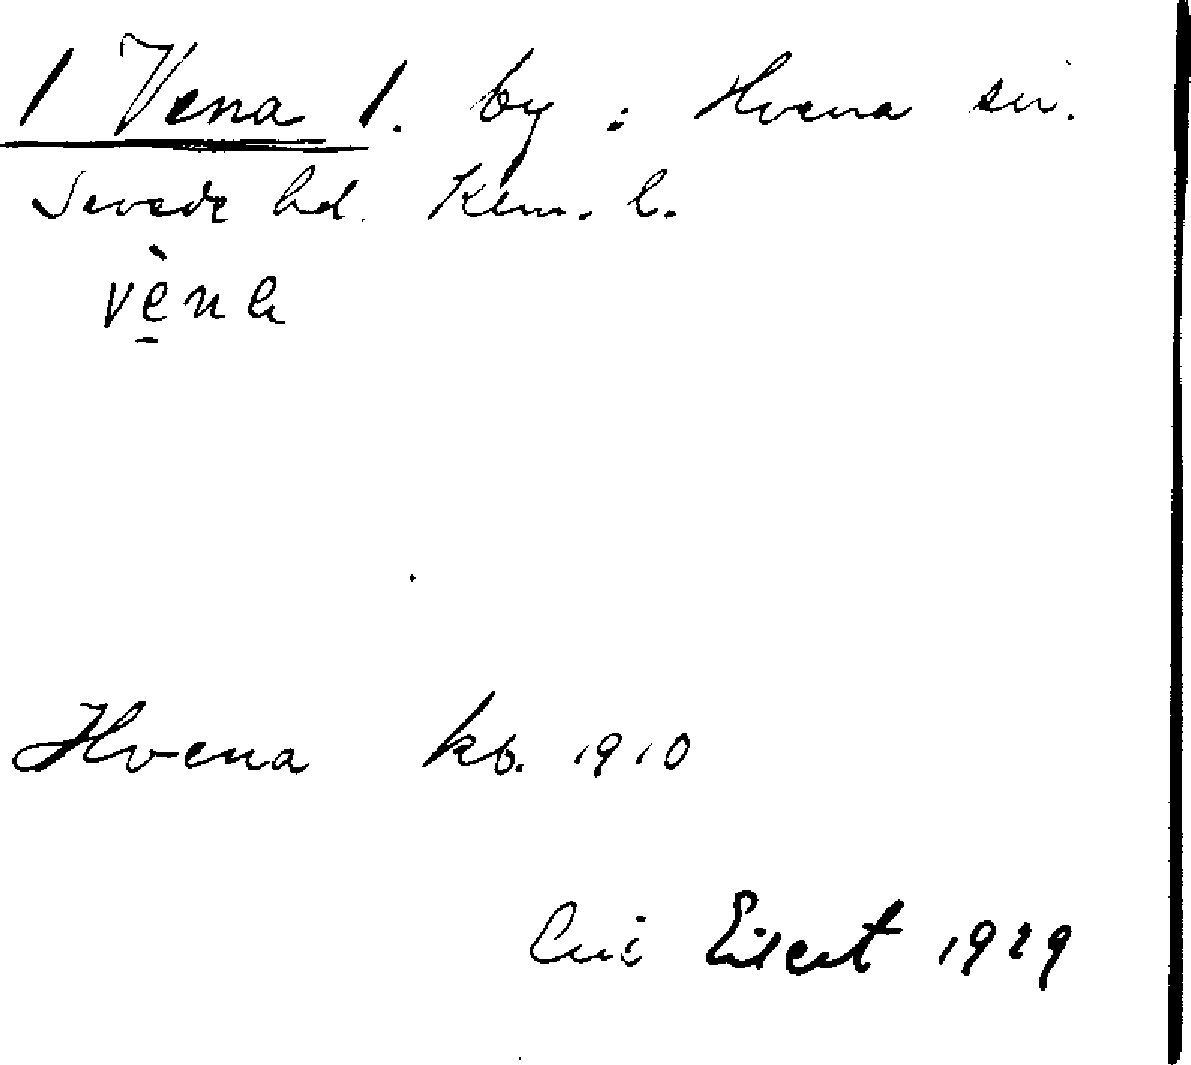 1 Vena 1. by : Hvena sn.
Sevede hd. Kalm. l.
vè̱na
Hvena kb. 1910
Eilert 1929